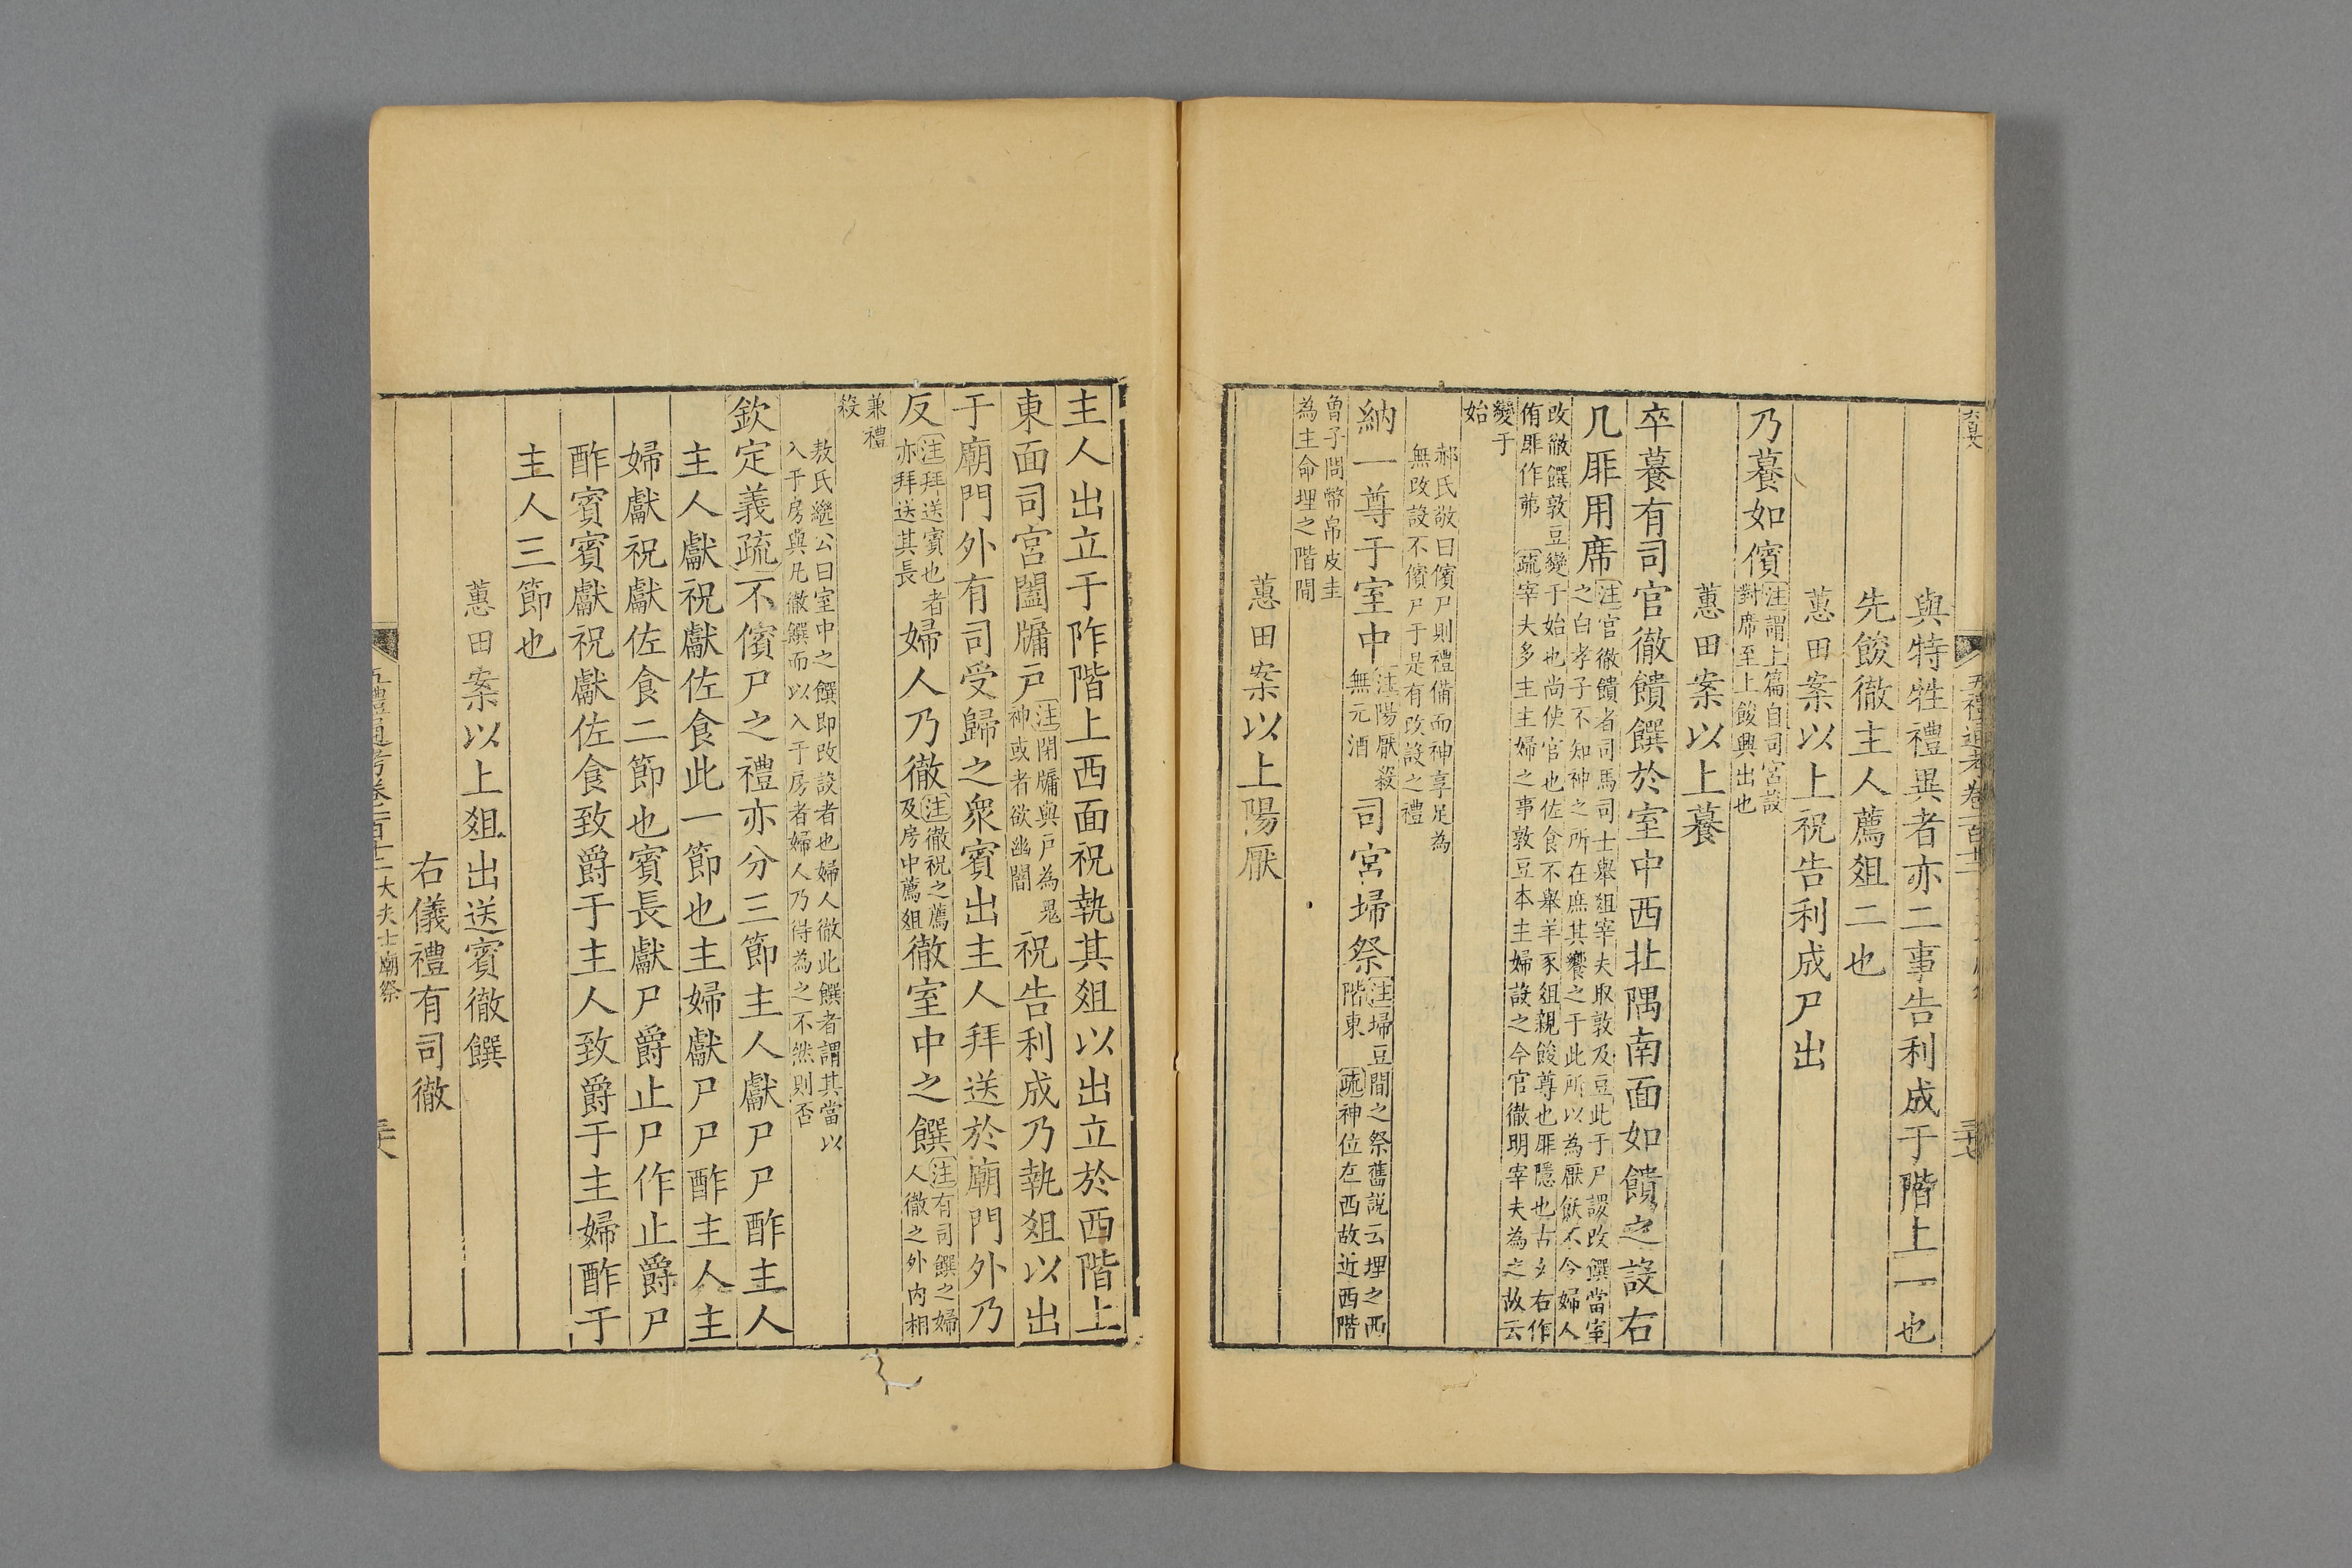 與特牲禮異者亦二事告利成于階上一也
先餕徹主人薦俎二也
蕙田案以上祝告利成尸出
乃養如儐注謂上篇自司宮設對席至上餕興出也
蕙田案以上養
卒養有司官徹饋饌於室中西北隅南面如饋之設右
几厞用席注官徹饋者司馬司士舉俎宰夫取敦及豆此于尸謖改饌當室之白孝子不知神之所在庶其饗之于此所以為厭飫不令婦人
改徹饌敦豆變于始也尚使官也佐食不舉羊豕俎親餕尊也厞隱也古文右作侑厞作茀 疏宰夫多主主婦之事敦豆本主婦設之今官徹明宰夫為之故云
變于始
郝氏敬曰儐尸則禮備而神享足為無改設不儐尸于是有改設之禮
納一尊于室中注陽厭殺無元酒司宮埽祭注埽豆間之祭舊說云埋之西階東 疏神位在西故近西階
曾子問幣帛皮圭為主命埋之階間
蕙田案以上陽厭
主人出立于阼階上西面祝執其俎以出立於西階上
東面司宮闔牖戶注閉牖與戶為鬼神或者欲幽闇祝告利成乃執俎以出
于廟門外有司受歸之眾賓出主人拜送於廟門外乃
反注拜送賓也者亦拜送其長婦人乃徹注徹祝之薦及房中薦俎徹室中之饌注有司饌之婦人徹之外內相
兼禮殺
敖氏繼公曰室中之饌即改設者也婦人徹此饌者謂其當以入于房與凡徹饌而以入于房者婦人乃得為之不然則否
欽定義疏不儐尸之禮亦分三節主人獻尸尸酢主人
主人獻祝獻佐食此一節也主婦獻尸尸酢主人主
婦獻祝獻佐食二節也賓長獻尸爵止尸作止爵尸
酢賓賓獻祝獻佐食致爵于主人致爵于主婦酢于
主人三節也
蕙田案以上俎出送賓徹饌
右儀禮有司徹
五禮通考卷一百十一 大夫士廟祭